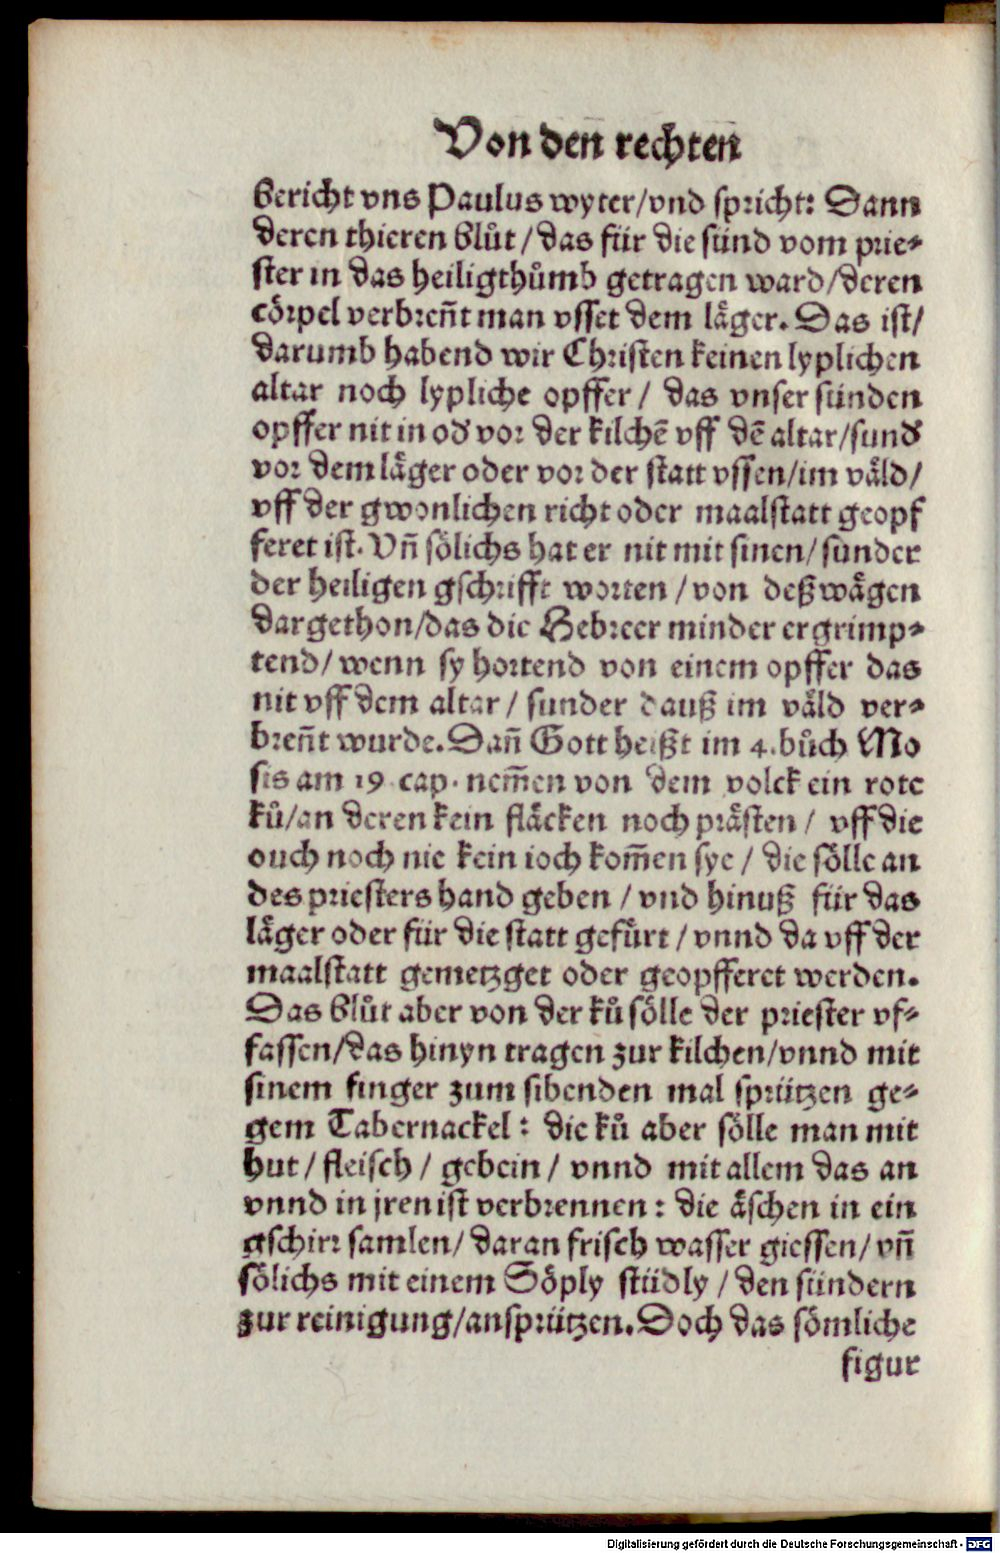 Von den rechten
bericht vns Paulus wyter/vnd spricht: Dann
deren thieren blůt/das für die sünd vom prie⸗
ster in das heiligthůmb getragen ward/deren
cörpel verbreñt man vsset dem läger. Das ist/
darumb habend wir Christen keinen lyplichen
altar noch lypliche opffer/ das vnser sünden
opffer nit in oď vor der kilchē vff dē altar/sunď
vor dem läger oder vor der statt vssen/im väld/
vff der gwonlichen richt oder maalstatt geopf
feret ist. Vñ sölichs hat er nit mit sinen/sunder
der heiligen gschrifft worten/von deßwägen
dargethon/das die Hebreer minder ergrimp⸗
tend/wenn sy hortend von einem opffer das
nit vff dem altar/sunder dauß im väld ver⸗
breñt wurde. Dañ Gott heißt im 4. bůch Mo
sis am 19 cap. nem̄en von dem volck ein rote
ků/an deren kein fläcken noch prästen/ vff die
ouch noch nie kein ioch kom̄en sye/die sölle an
des priesters hand geben/vnd hinuß für das
läger oder für die statt gefürt/vnnd da vff der
maalstatt gemetzget oder geopfferet werden.
Das blůt aber von der ků sölle der priester vf⸗
fassen/das hinyn tragen zur kilchen/vnnd mit
sinem finger zum sibenden mal sprützen ge⸗
gem Tabernackel: die ků aber sölle man mit
hut/fleisch/gebein/vnnd mit allem das an
vnnd in jren ist verbrennen: die äschen in ein
gschirr samlen/daran frisch wasser giessen/vñ
sölichs mit einem Söply stüdly/den sündern
zur reinigung/ansprützen. Doch das sömliche
figur
Digitalisierung gefördert durch die Deutsche Forschungsgemeinschaft - DFG